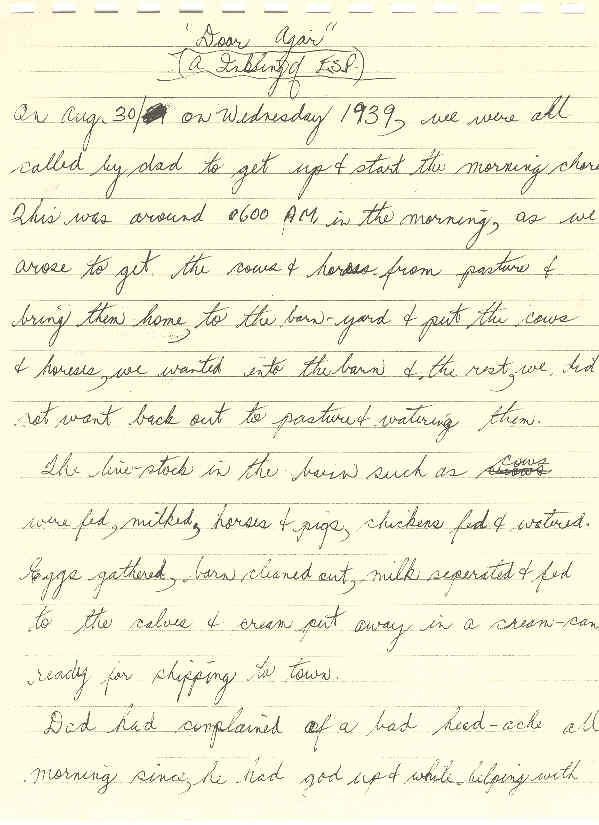 "Door Ajar"
(A Inkling of ESP.)
On Aug. 30/ on Wednesday 1939, we were all
called by dad to get up & start the morning chore
This was around 0600 AM in the morning, as we
arose to get the cows & horses from pasture &
bring them home, to the barn-yard & put the cows
& horeses, we wanted into the barn & the rest, we did
not want back out to pasture & watering them.
The live-stock in the barn such as cows
were fed, milked, horses & pigs, chickens fed & watered.
Eggs gathered, barn cleaned out, milk seperated & fed
to the calves & cream put away in a cream-can
ready for shipping to town.
Dad had complained of a bad head-ache all
morning since, he had god up & while helping with